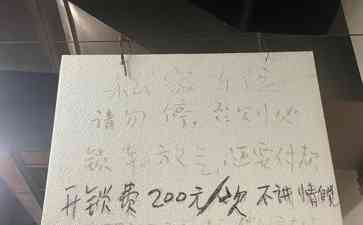 私家车位
请勿停,否则必
锁车放气,还要付款
开锁费200元/次 不讲情面